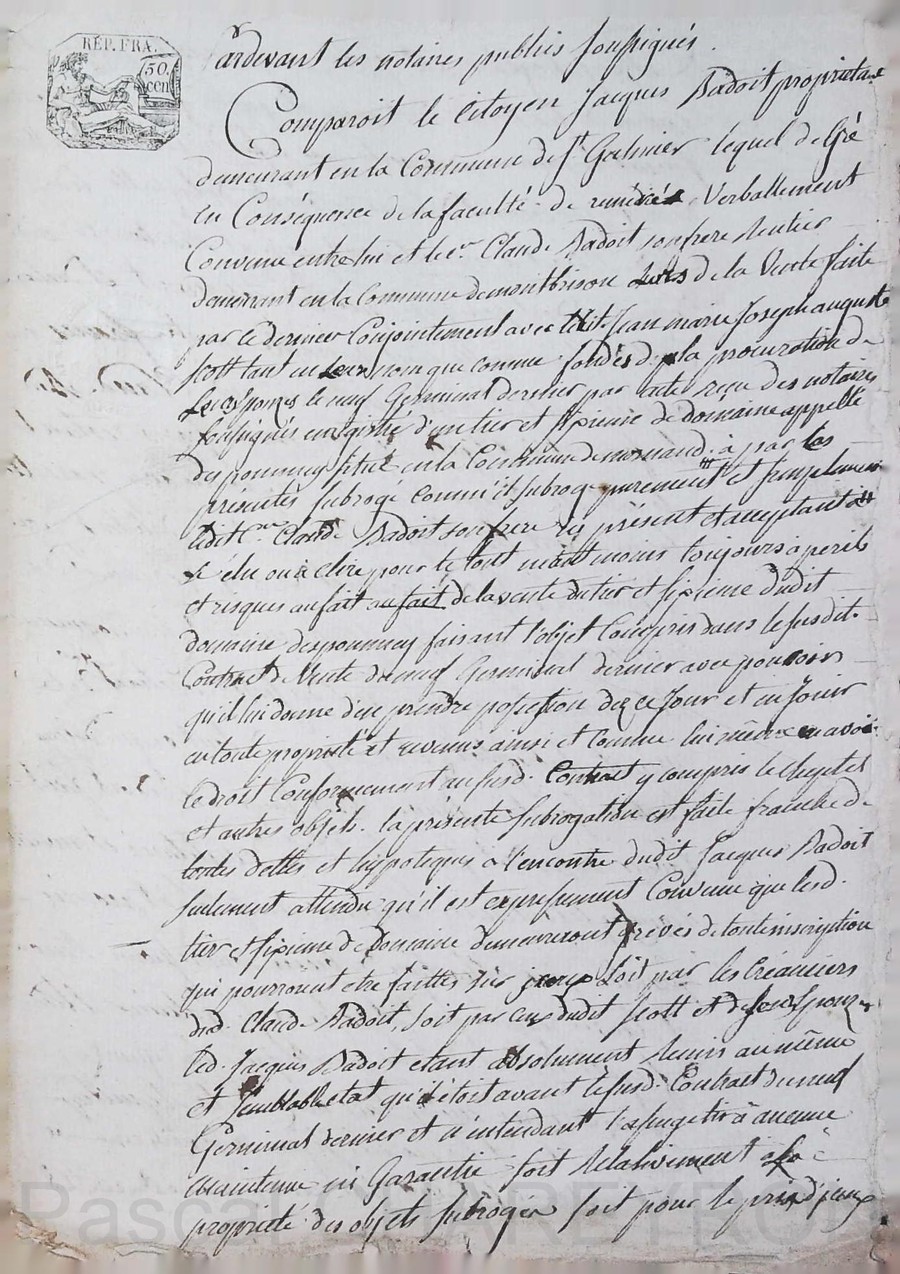 RÉP. FRA.
50
cen
Pardevant les notaires publics soussignés.
Comparoit le Citoyen Jacques Badoit proprietaire
demeurant en la Commune de St Galmier lequel de Gré
en Conséquence de la faculté de Verballement
Convenue entre lui et le cn Claude Badoit son frere Rentier
demeurant en la Commune de montbrison lors de la Vente faite
par ce dernier Conjointement avec Jean marie Joseph auguste
scott tant en leur nom que comme fondés de la procuration de
leurs Epouses le neuf Germinal dernier par acte reçu des notaires
soussignés enregistré d'un tier et sixieme de domaine appellé
despommey situé en la Commune de mornand, à par les
présentes subrogé comm'il subroge purement et simplement
ledit Cen Claude Badoit son frere ici présent et acceptant
élu ou à elire pour le tout néantmoins toujours à perils
et risques au fait au fait de la vente du tier et sixieme dudit
domaine despommey faisant l'objet Compris dans le susdit
Contract de Vente du neuf Germinal dernier avec pouvoir
qu'il lui donne d'en prendre possession dez ce Jour et en Jouir
en toute proprieté et revenus ainsi et Comme lui même en avoit
le droit Conformement au susd. Contract y compris le Cheptel
et autres objets. la présente subrogation est faite franche de
toutes dettes et hypoteques a l'encontre dudit Jacques Badoit
seulement attendu qu'il est expressement Convenu que lesd.
tier et sixieme de Domaine demeureront grévés de toute inscription
qui pourroient etre faittes sur soit par les Créanciers
dud. Claude Badoit, soit par ceux dudit scott et de leurs Epouzes
led. Jacques Badoit etant absolument remis au même
et semblable etat qu'il étoit avant le susd. Contract du neuf
Germinal dernier et n'entendant s'assugetir à aucune
maintenue ni Garantie soit Relativement a la
proprieté des objets subrogés soit pour le prix d'jceux